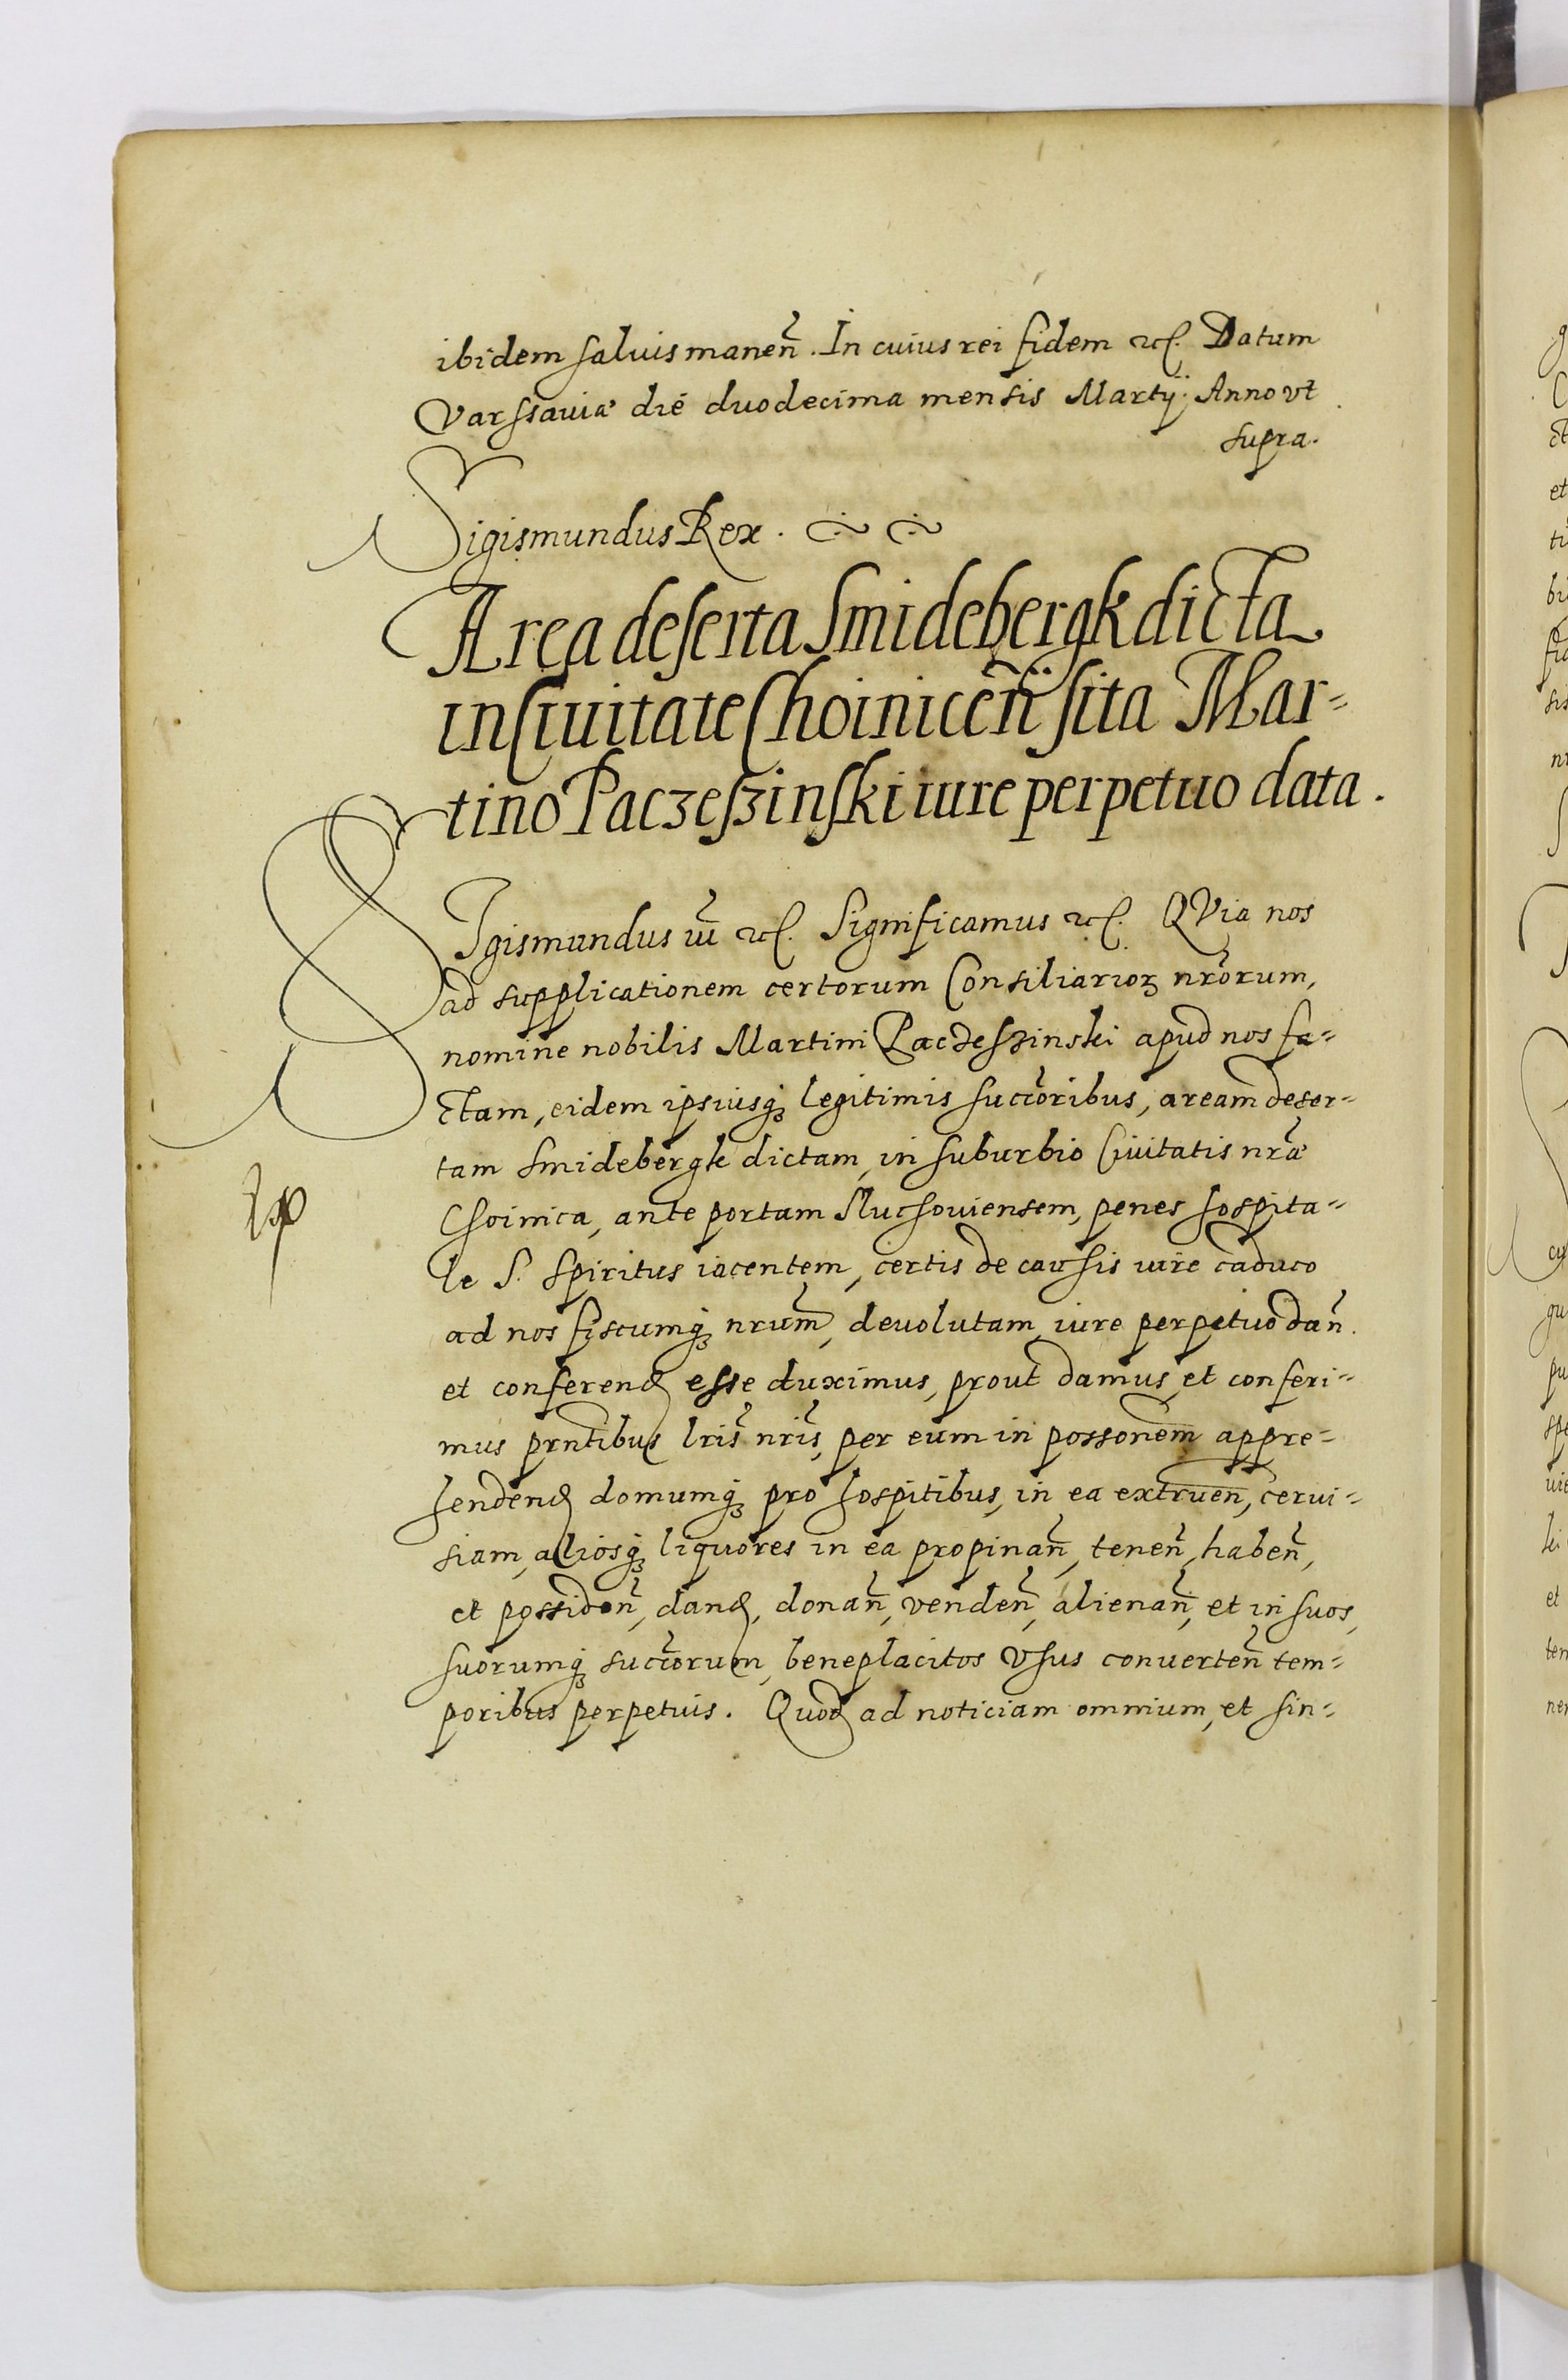 ibidem saluis manen̄. In cuius rei fidem ꝛc. Datum
Varssauiæ die duodecima mensis Martij. Anno vt
supra.
Sigismundus Rex.
Area deserta Smidebergk dicta
in Ciuitate Choinicen̄ sita Mar-
tino Paczeszinski iure perpetuo data.
SIgismundus iii ꝛc. Significamus ꝛc. QVia nos
ad supplicationem certorum Consiliarioꝝ nrõrum,
nomine nobilis Martini Paczeszinski apud nos fa-
ctam, eidem ipsiusqꝫ legitimis succõribus, aream deser-
tam Smidebergk dictam, in suburbio Ciuitatis nræ̃
Choinica, ante portam Sluchouiensem, penes hospita-
le S. Spiritus iacentem, certis de causis iure caduco
ad nos fiscumqꝫ nrum̃, deuolutam, iure perpetuo dan̄.
et conferenḍ esse duximus, prout damus, et conferi-
mus prn̄tibus lrĩs nrĩs, per eum in possonem̃ appre-
hendenḍ domumqꝫ pro hospitibus, in ea extruen̄, cerui-
siam, aliosqꝫ liquores in ea propinan̄, tenen̄, haben̄,
et possiden̄, danḍ, donan̄, venden̄, alienan̄, et in suos,
suorumqꝫ succõrum, beneplacitos vsus conuerten̄ tem-
poribus perpetuis. Quod ad noticiam omnium, et sin-